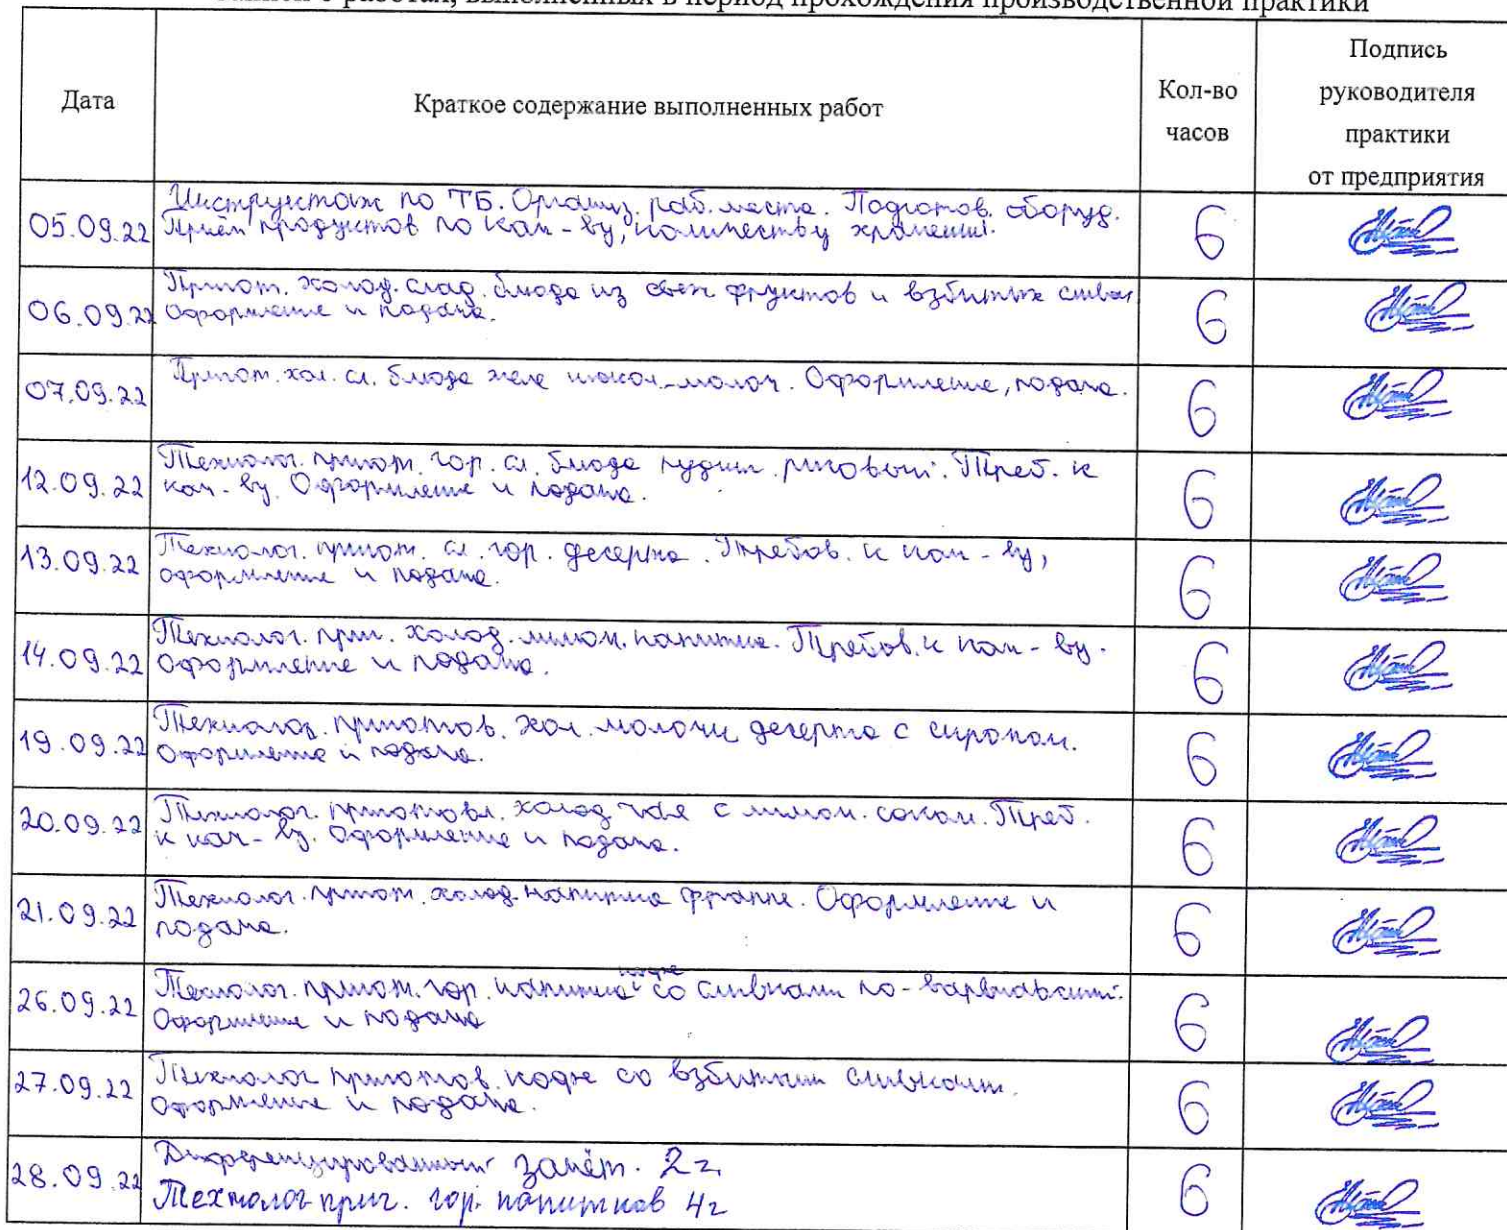 записи о работах, выполненных в период прохождения производственной практики
Дата
Краткое содержание выполненных работ
Кол-во
часов
Подпись
руководителя
практики
от предприятия
05.09.22
Инструктаж по ТБ. Организ. раб. места. Подготов. оборуд.
Приём продуктов по кач-ву, количеству хранений.
6
06.09.22
Пригот. холод. слад. блюда из свеж фруктов и взбитых сливок
Оформление и подача.
6
07.09.22
Пригот. хол. сл. блюда желе шокол-молоч. Оформление, подача.
6
12.09.22
Технолог. пригот. гор. сл. блюда пудинг рисовый. Треб. к
кач-ву. Оформление и подача.
6
13.09.22
Технолог. пригот. сл. гор. десерта. Требов. к кач-ву,
оформление и подача.
6
14.09.22
Технолог. приг. холод. лимон. напитка. Требов. к кач-ву.
Оформление и подача.
6
19.09.22
Технолог. приготов. хол. молочн десерта с сиропом.
Оформление и подача.
6
20.09.22
Технолог. приготовл. холод чая с лимон. соком. Треб.
к кач-ву. Оформление и подача.
6
21.09.22
Технолог. пригот. холод. напитка фраппе. Оформление и
подача.
6
26.09.22
Технолог. пригот. гор. напитка кофе со сливками по-варшавски.
Оформление и подача
6
27.09.22
Технолог приготов. кофе со взбитыми сливками.
Оформление и подача.
6
28.09.22
Дифференцированный зачёт. 2г.
Технолог приг. гор. напитков 4г
6